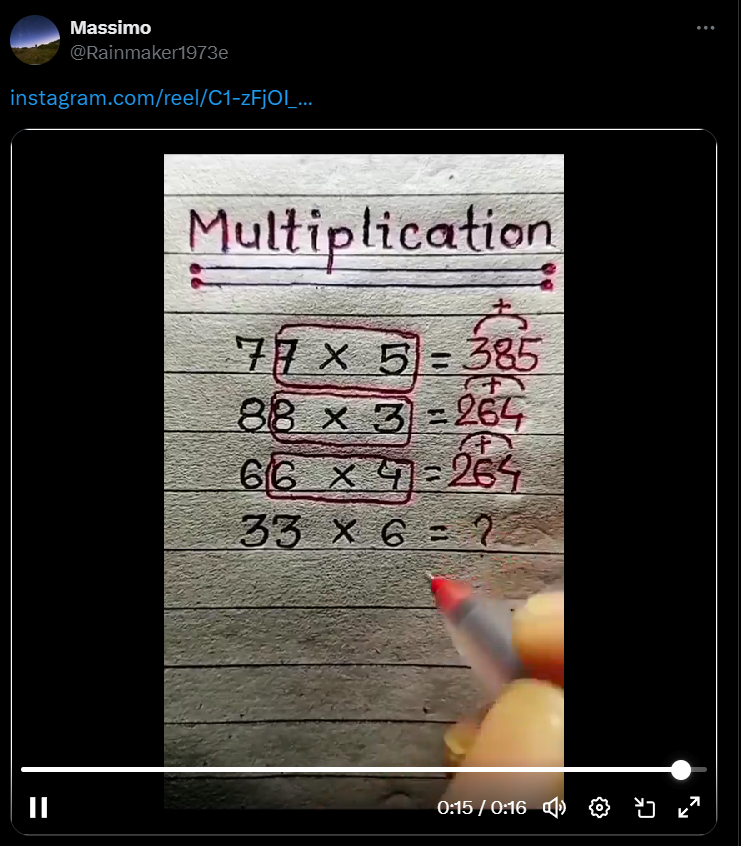 Massimo
@Rainmaker1973e
instagram.com/reel/C1-zFjOI_...
Multiplication
+
77 × 5 = 385
+
88 × 3 = 264
+
66 × 4 = 264
33 × 6 = ?
0:15 / 0:16